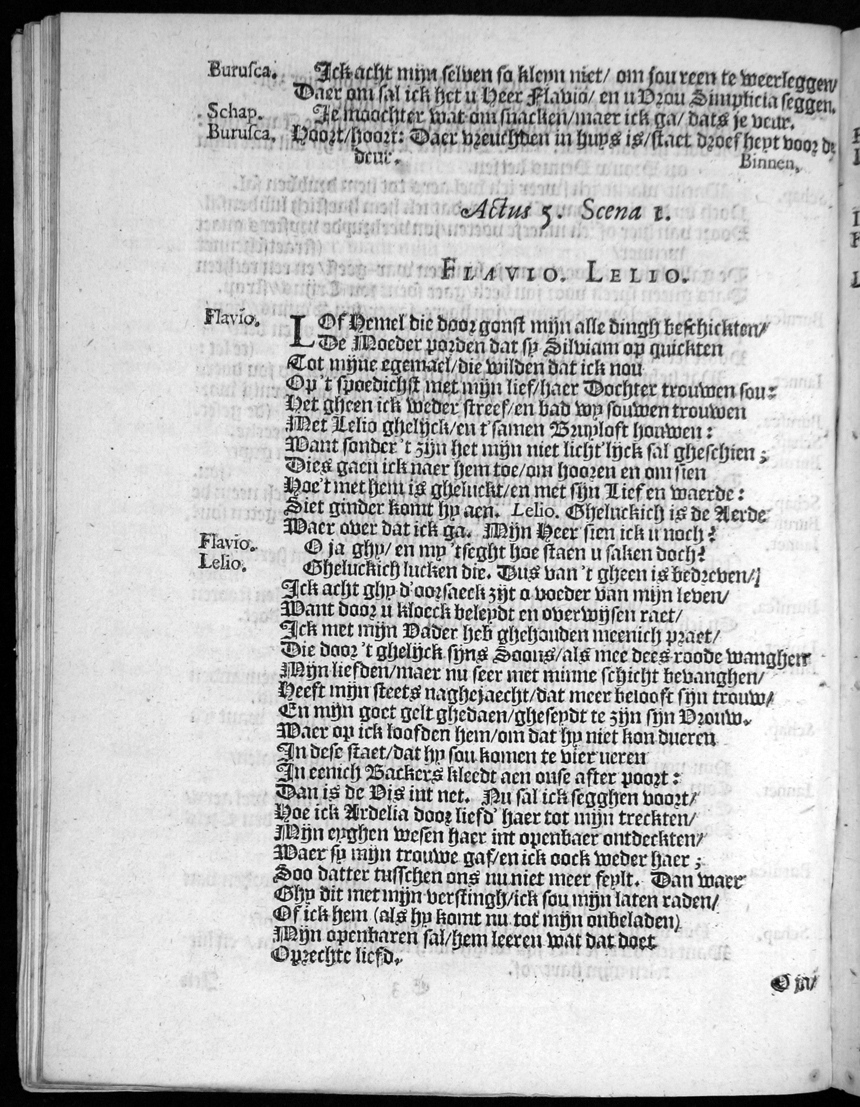 Burusca. Ick acht mijn selven so kleyn niet/ om sou reen te weerleggen/
Daer om sal ick het u Heer Flavio/ en u Vrou Simplicia seggen.
Schap. Je moochter wat om snacken/maer ick ga/ dats je veur.
Burusca. Hoort/hoort: Daer vreuchden in huys is/staet droefheyt voor de
deur. Binnen.
Actus 5. Scena 1.
FLAVIO. LELIO.
Flavio. LOf Hemel die door gonst mijn alle dingh beschickten/
De Moeder porden dat sy Silviam op quickten
Tot mijne egemael/die wilden dat ick nou
Op 't spoedichst met mijn lief/haer Dochter trouwen sou:
Het gheen ick weder streef/en bad wy souwen trouwen
Met Lelio ghelijck/en t'samen Bruyloft houwen:
Want sonder 't zijn het mijn niet licht'lijck sal gheschien;
Dies gaen ick naer hem toe/om hooren en om sien
Hoe't met hem is gheluckt/en met sijn Lief en waerde:
Siet ginder komt hy aen. Lelio. Gheluckich is de Aerde
Waer over dat ick ga. Mijn Heer sien ick u noch?
Flavio. O ja ghy/ en my 'tseght hoe staen u saken doch?
Lelio. Gheluckich lucken die. Dus van 't gheen is bedreven/
Ick acht ghy d'oorsaeck zijt o voeder van mijn leven/
Want door u kloeck beleydt en overwijsen raet/
Ick met mijn Vader heb ghehouden meenich praet/
Die door 't ghelijck sijns Soons/als mee dees roode wanghen
Mijn liefden/maer nu seer met minne schicht bevanghen/
Heeft mijn steets naghejaecht/dat meer belooft sijn trouw/
En mijn goet gelt ghedaen/gheseydt te zijn sijn Vrouw.
Waer op ick loofden hem/om dat hy niet kon dueren
In dese staet/dat hy sou komen te vier ueren
In eenich Backers kleedt aen onse after poort:
Dan is de Vis int net. Nu sal ick segghen voort/
Hoe ick Ardelia door liefd' haer tot mijn treckten/
Mijn eyghen wesen haer int openbaer ontdeckten/
Waer sy mijn trouwe gaf/en ick oock weder haer;
Soo datter tusschen ons nu niet meer feylt. Dan waer
Ghy dit met mijn verstingh/ick sou mijn laten raden/
Of ick hem (als hy komt nu tot mijn onbeladen)
Mijn openbaren sal/hem leeren wat dat doet
Oprechte liefd.
O ja/